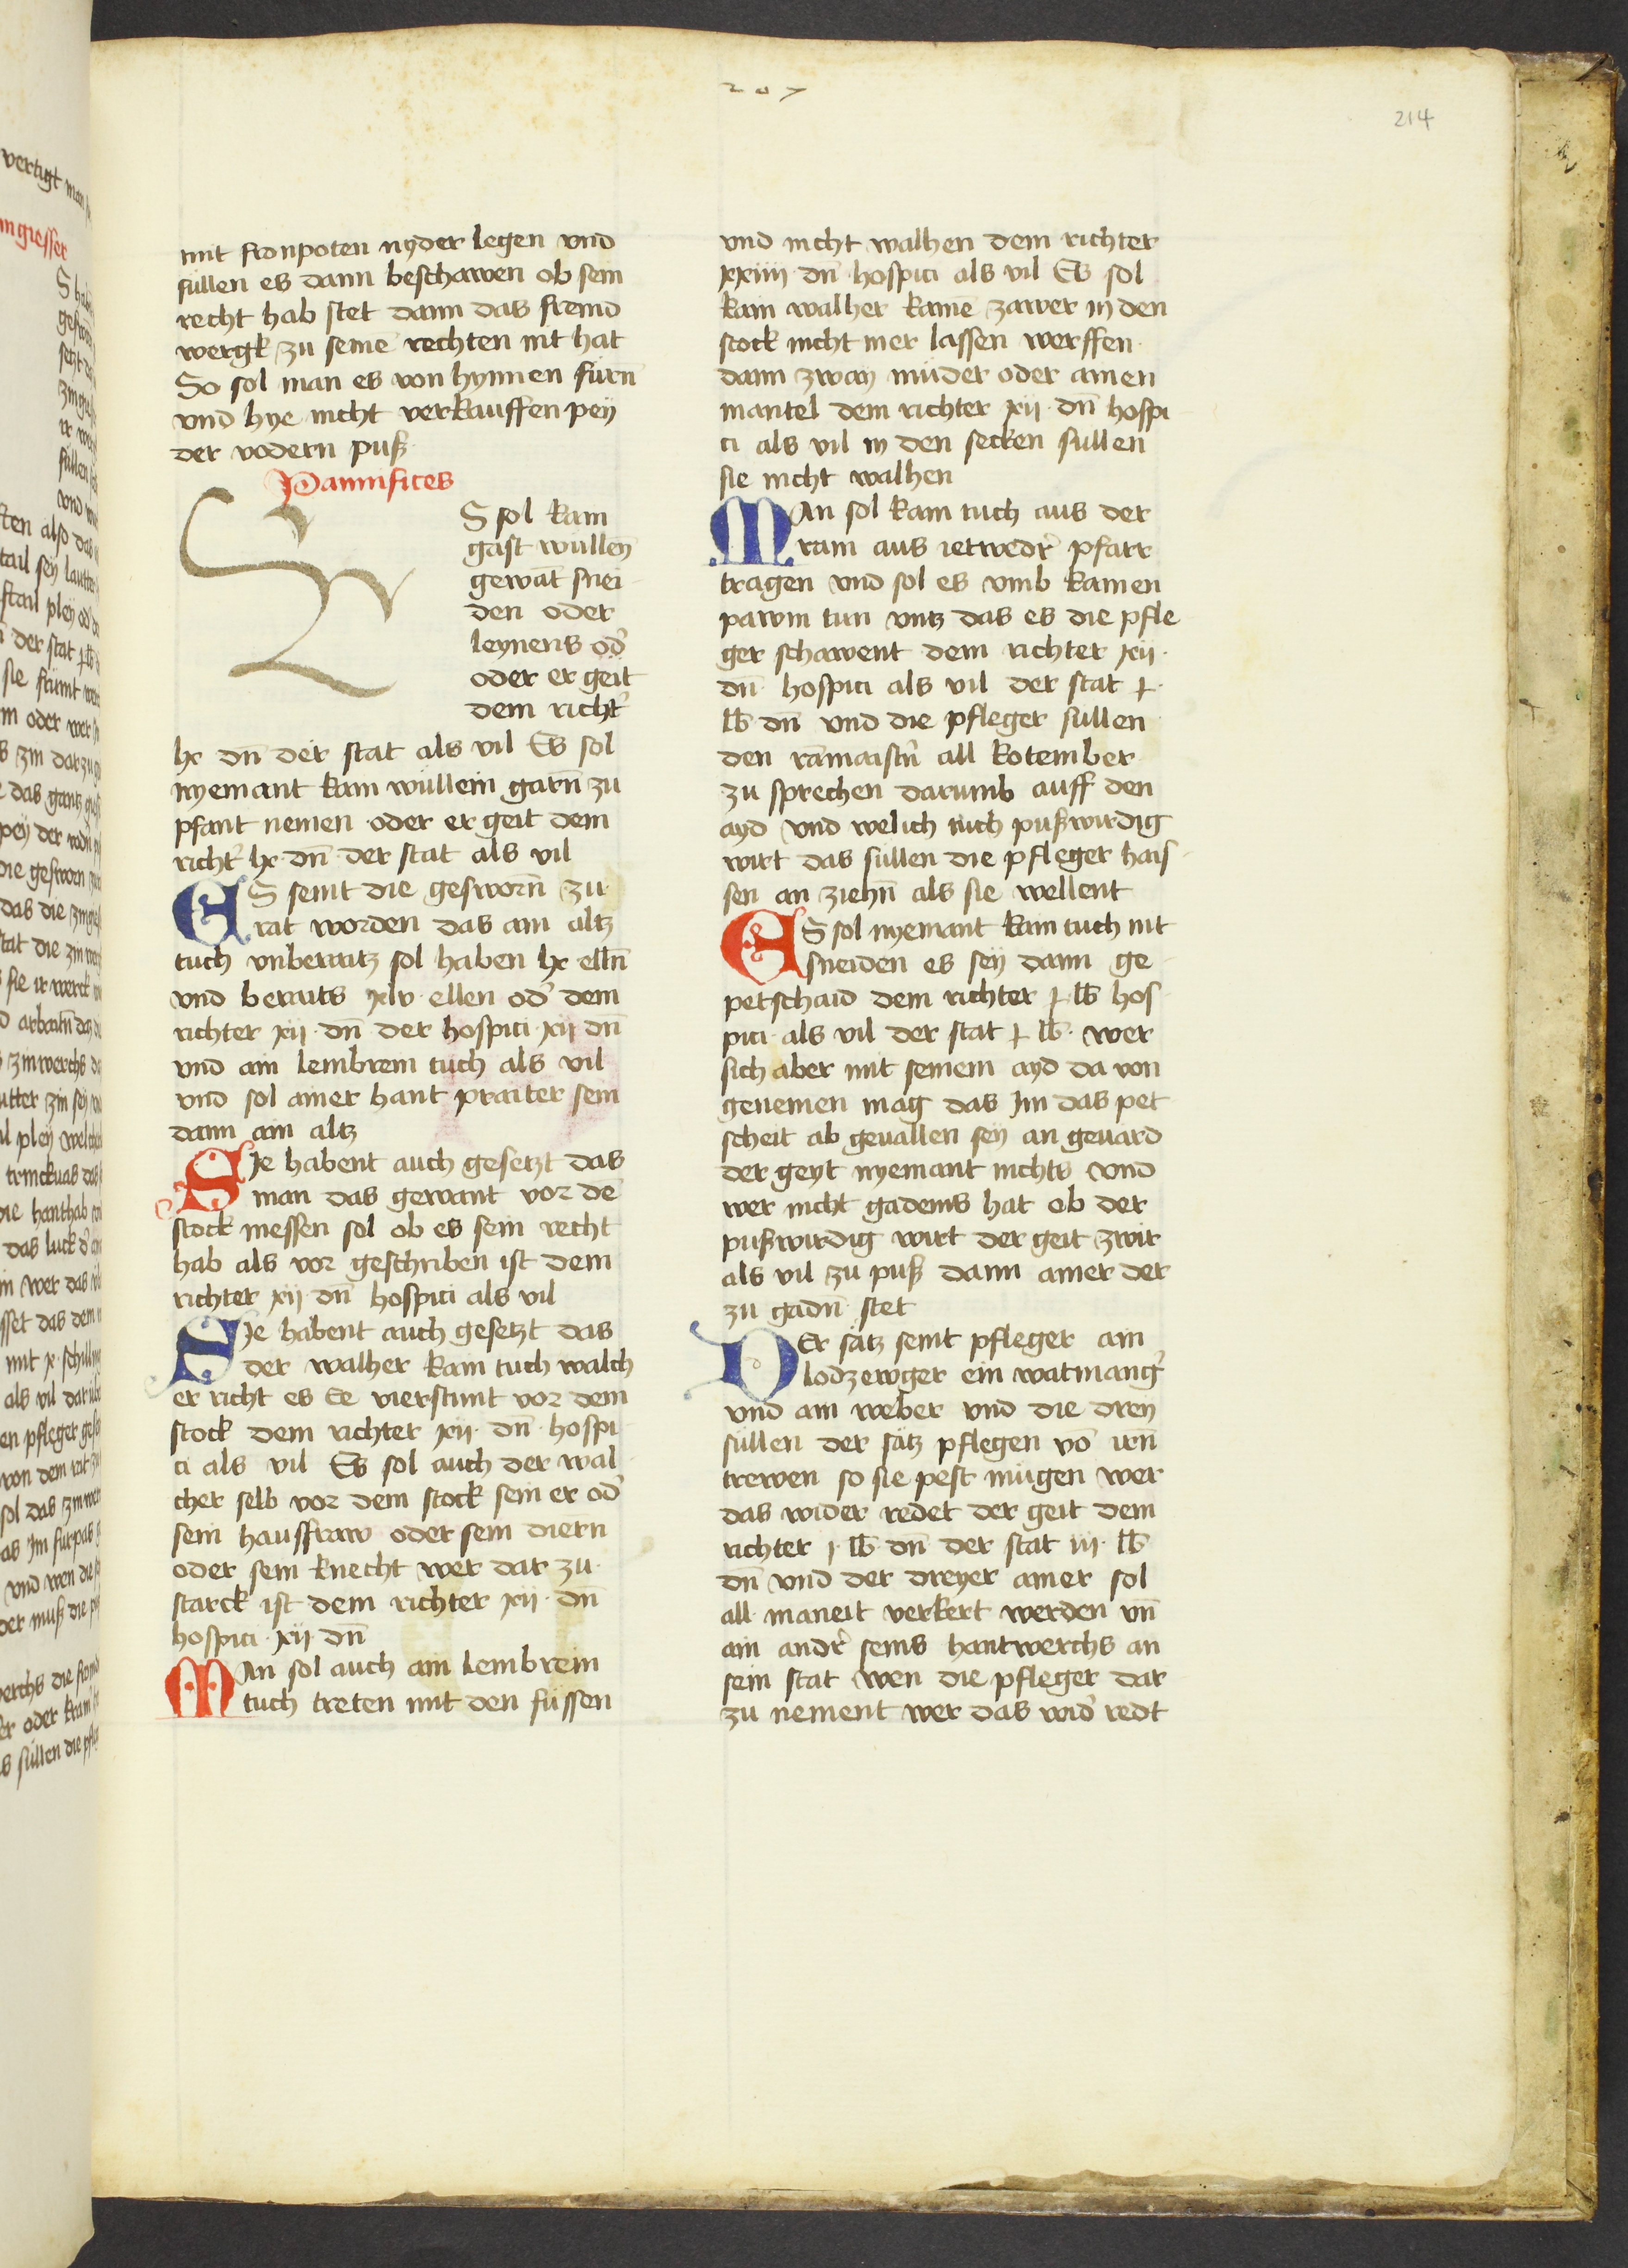 207
214
mit fronpoten nyder legen vnd
süllen es dann beschawen ob sein
recht hab stet dann das fremd
wergk zu seinē rechten nit hat
So sol man es von hynnen fürn̄
vnd hye nicht verkauffen pey
der vodern puß
Pannifices
S sol kain
gast wullen̄
gewāt snei
den oder
leynens od̓
oder er geit
dem richt̓
lx dn̄ der stat als vil Es sol
nyemant kain wüllein garn̄ zu
pfant nemen oder er geit dem
richt̓ lx dn̄ der stat als vil
ES seint die gesworn̄ zu
rat worden das ain altz
tuch vnberaitz sol haben lx elln̄
vnd beraits xlv ellen od̓ dem
richter xij dn̄ der hospici xij dn̄
vnd ain lembrein tuch als vil
vnd sol ainer hant praiter sein
dann ain altz
SIe habent auch gesetzt das
man das gewant vor dē
stock messen sol ob es sein recht
hab als vor geschriben ist dem
richter xij dn̄ hospici als vil
SIe habent auch gesetzt das
der walher kain tuch walch
er richt es Ee vierstunt vor dem
stock dem richter xij dn̄ hospi
ci als vil Es sol auch der wal
cher selb vor dem stock sein er od̓
sein hausfraw oder sein diern
oder sein knecht wer dar zu
starck ist dem richter xij dn̄
hospici xij dn̄
MAn sol auch ain lembrein
tuch treten mit den füssen
vnd nicht walhen dem richter
xxiiij dn̄ hospici als vil Es sol
kain walher kainē zawer in den
stock nicht mer lassen werffen
dann zway müder oder ainen
mantel dem richter xij dn̄ hospi
ci als vil in den secken süllen
sie nicht walhen
MAn sol kain tuch aus der
ram aus ietwedr̓ pfarr
tragen vnd sol es vmb kainen
pawm tun vntz das es die pfle
ger schawent dem richter xij
dn̄ hospici als vil der stat ɟ
lb̄ dn̄ vnd die pfleger süllen
den rāmaistn̓ all kotember
zu sprechen darumb auff den
ayd vnd welich tuch pußwirdig
wirt das süllen die pfleger hais
sen an ziehn̄ als sie wellent
ES sol nyemant kain tuch nit
sneiden es sey dann ge
petschaid dem richter ɟ lb̄ hos
pici als vil der stat ɟ lb̄ wer
sich aber mit seinem ayd da von
genemen mag das Im das pet
scheit ab geuallen sey an geuard
der geyt nyemant nichts vnd
wer nicht gadems hat ob der
pußwirdig wirt der geit zwir
als vil zu puß dann ainer der
zu gadn̄ stet
DEr sätz seint pfleger ain
lodzewger ein watmang̓
vnd ain weber vnd die drey
süllen der sätz pflegen vō irn̄
trewen so sie pest mügen wer
das wider redet der geit dem
richter j lb̄ dn̄ der stat iij lb̄
dn̄ vnd der dreyer ainer sol
all maneit verkert werden vn̄
ain andr̓ seins hantwerchs an
sein stat wen die pfleger dar
zu nement wer das wid̓ redt